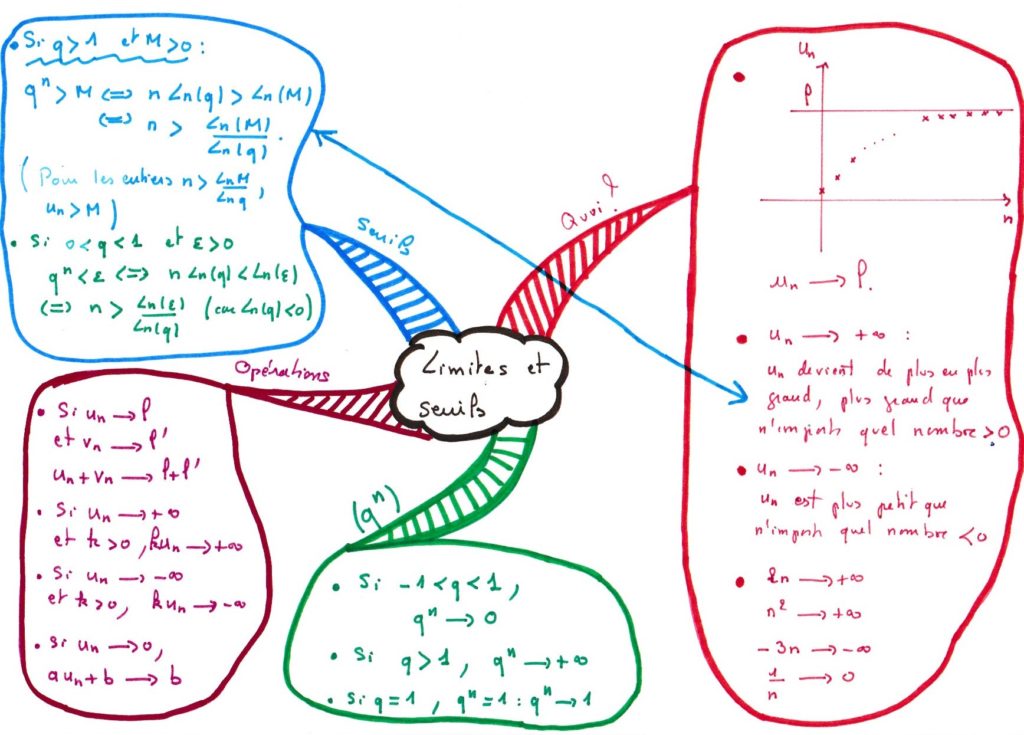 Limites et
seuils
Seuils
• Si q>1 et M>0 :
qⁿ > M <=> n Ln(q) > Ln(M)
<=> n > Ln(M)/Ln(q) .
(Pour les entiers n > LnM/Lnq ,
uₙ > M)
• Si 0<q<1 et ε>0
qⁿ < ε <=> n Ln(q) < Ln(ε)
<=> n > Ln(ε)/Ln(q) (car Ln(q)<0)
Quoi ?
•
uₙ
l
n
uₙ → l.
• uₙ → +∞ :
uₙ devient de plus en plus
grand, plus grand que
n'importe quel nombre >0
• uₙ → -∞ :
uₙ est plus petit que
n'importe quel nombre <0
• 2n → +∞
n² → +∞
-3n → -∞
1/n → 0
Opérations
• Si uₙ → l
et vₙ → l'
uₙ+vₙ → l+l'
• Si uₙ → +∞
et k>0, kuₙ → +∞
• Si uₙ → -∞
et k>0, kuₙ → -∞
• Si uₙ → 0,
auₙ+b → b
(qⁿ)
• Si -1<q<1,
qⁿ → 0
• Si q>1, qⁿ → +∞
• Si q=1, qⁿ=1 : qⁿ → 1